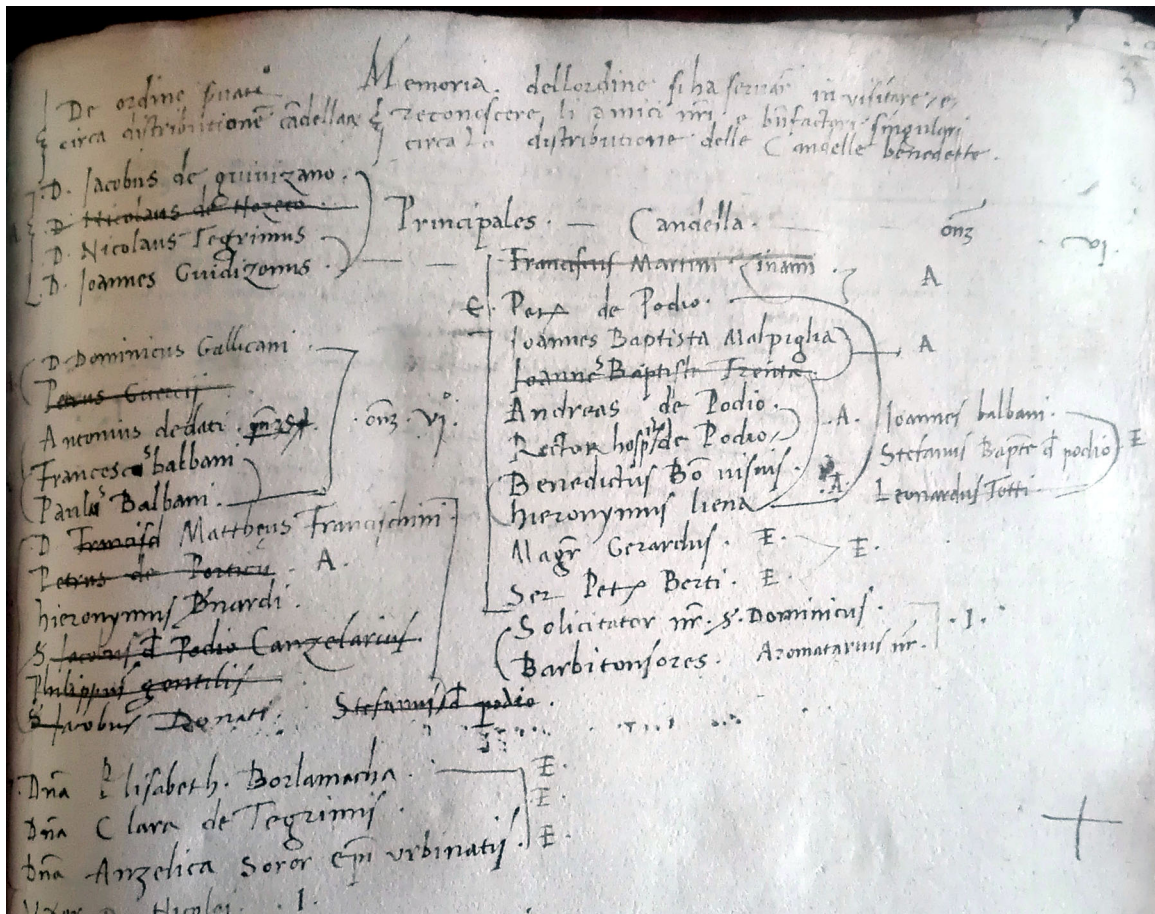 De ordine servari
circa distributionē cādellarū
Memoria. dellordine si ha servar in visitare, e,
reconoscere, li amici nr̄i, e bn̄factori singulari
circa la distributione delle Candelle benedette.
D. Jacobus de quivizano.
D. Nicolaus de Nozeto
D. Nicolaus Tegrimus
D. Joannes Guidizonus
Principales. — Candella. onz vi.
Franciscus Martini A
Petrus de Podio.
Joannes Baptista Malpiglia A
Joannes Baptista Trenta
Andreas de Podio.
Rector hospitlis de Podio A.
Benedictus Bōvisius. A.
hieronymus liena
Magr̄ Gerardus. E. E.
Ser Petrus Berti. E.
Solicitator nr̄. S. Dominicus. I.
Barbitonsores. Aromatarius nr̄.
Joannes balbani.
Stefanus Bapte d podio E
Leonardus Totti
D Dominicus Gallicani
Petrus Guercij
Antonius dedati onz vi.
Francescus balbani
Paulus Balbani.
D Matthęus Francischini
Petrus de Porticu A.
hieronymus Bn̄ardi.
S. Jacobus d Podio Canzelarius
Philippus gentilis
S Jacobus Donati. Stefanus d podio.
Dn̄a Elisabeth. Borlamacha. E.
Dn̄a Clara de Tegrimis. E
Dn̄a Anzelica Soror ep̄i urbinatis E.
Uxor D. Nicolai. I.